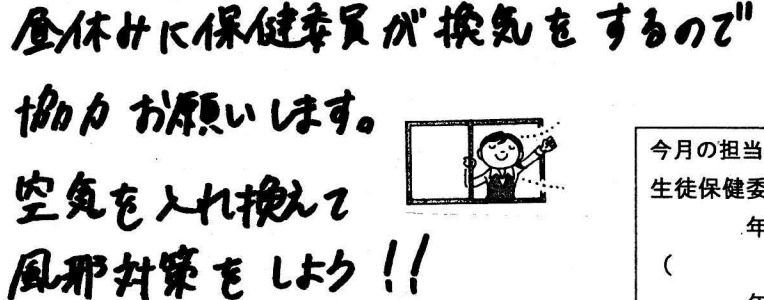 昼休みに保健委員が換気をするので
協力お願いします。
空気を入れ換えて
風邪対策をしよう!!
今月の担当
生徒保健委
年
(
年